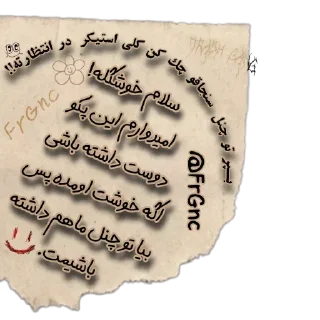 بپر تو چنل سنجاقو چک کن کلی استیکر در انتظارته!!
سلام خوشگله!
امیدوارم این پکو
دوست داشته باشی
اگه خوشت اومده پس
بیا تو چنل ما هم داشته
باشیمت.
@FrGnc
FrGnc